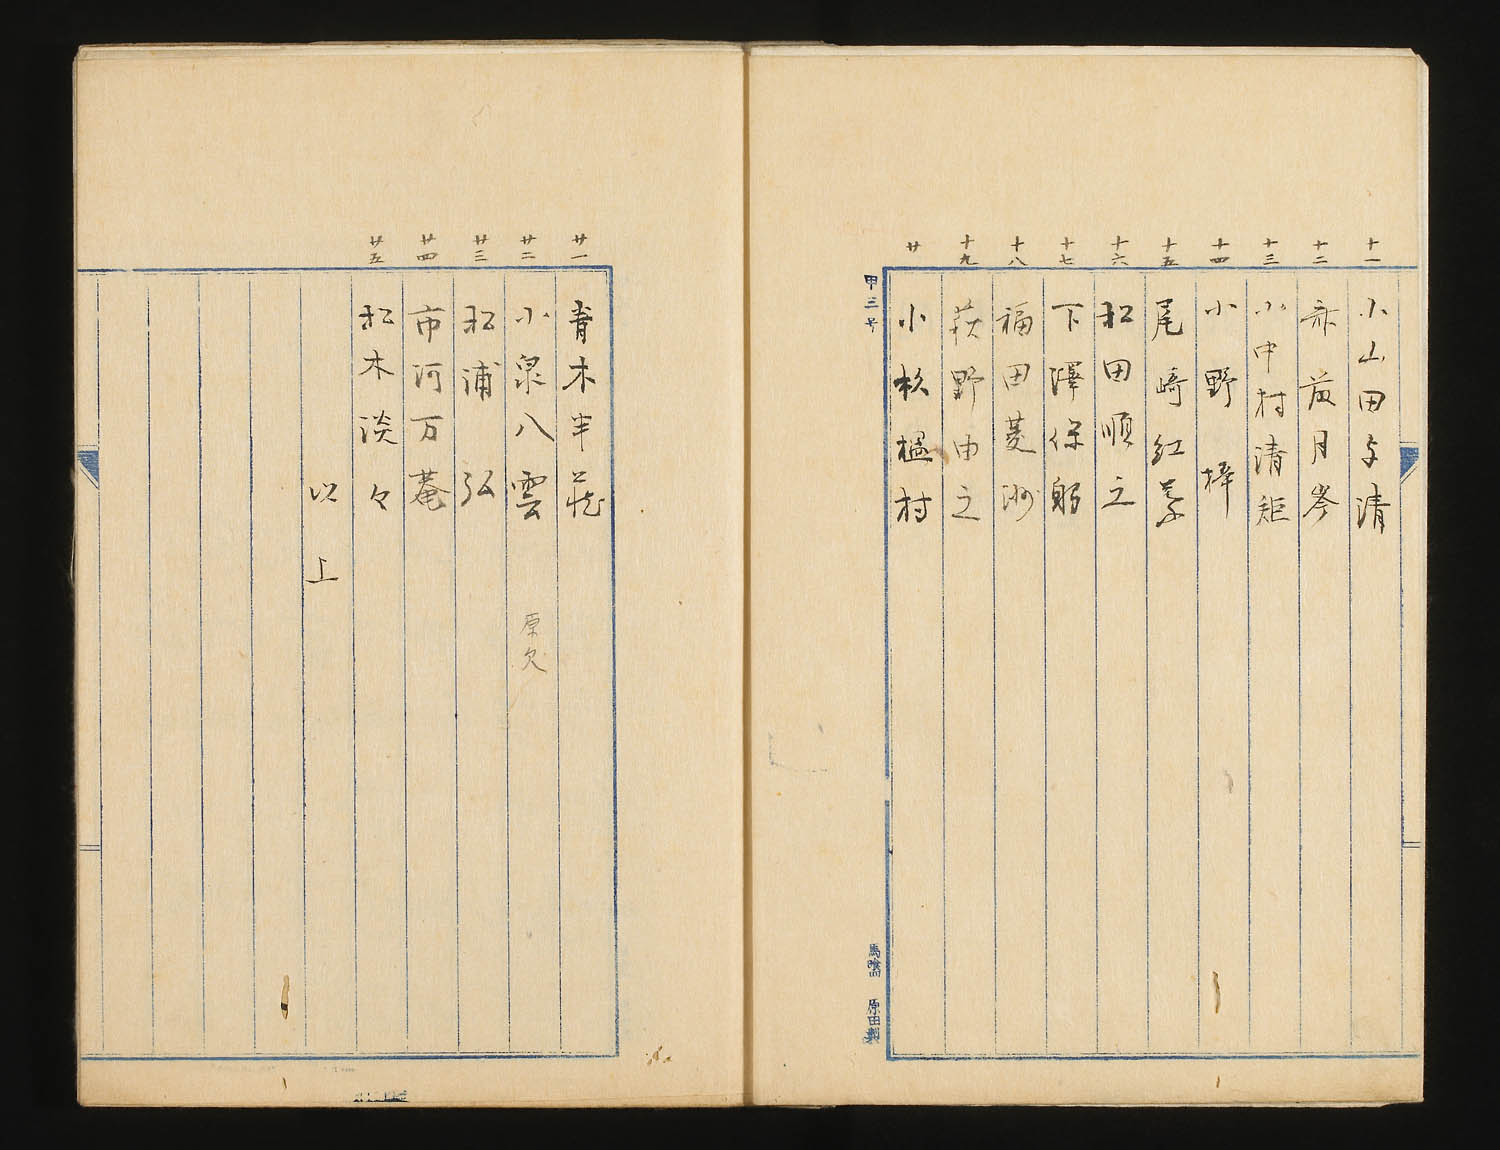 十一 小山田与清
十二 斎藤月岑
十三 小中村清矩
十四 小野梓
十五 尾崎紅葉
十六 松田順之
十七 下澤保躬
十八 福田菱洲
十九 萩野由之
廿 小杉榲村
甲三号
馬喰四 原田製
廿一 青木半莊
廿二 小泉八雲 原欠
廿三 松浦弘
廿四 市河万菴
廿五 松木淡々
以上